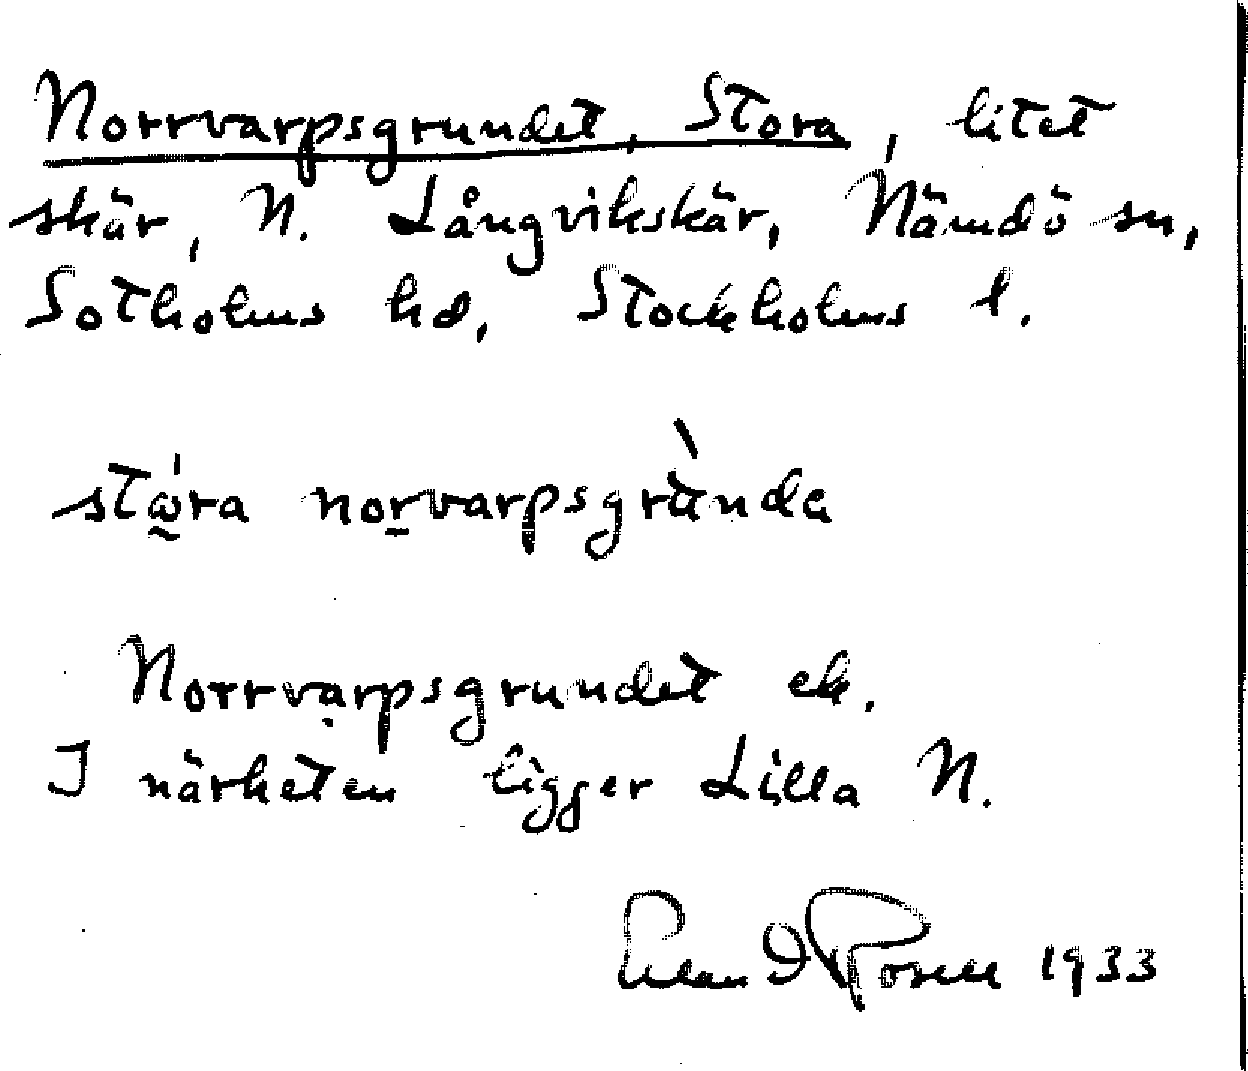 Norrvarpsgrundet, Stora, litet
skär, N. Långvikskär, Nämdö sn,
Sotholms hd, Stockholms l.
stώ̰ra norvarpsgrùnda
Norrvarpsgrundet ek.
I närheten ligger Lilla N.
Rosell 1933